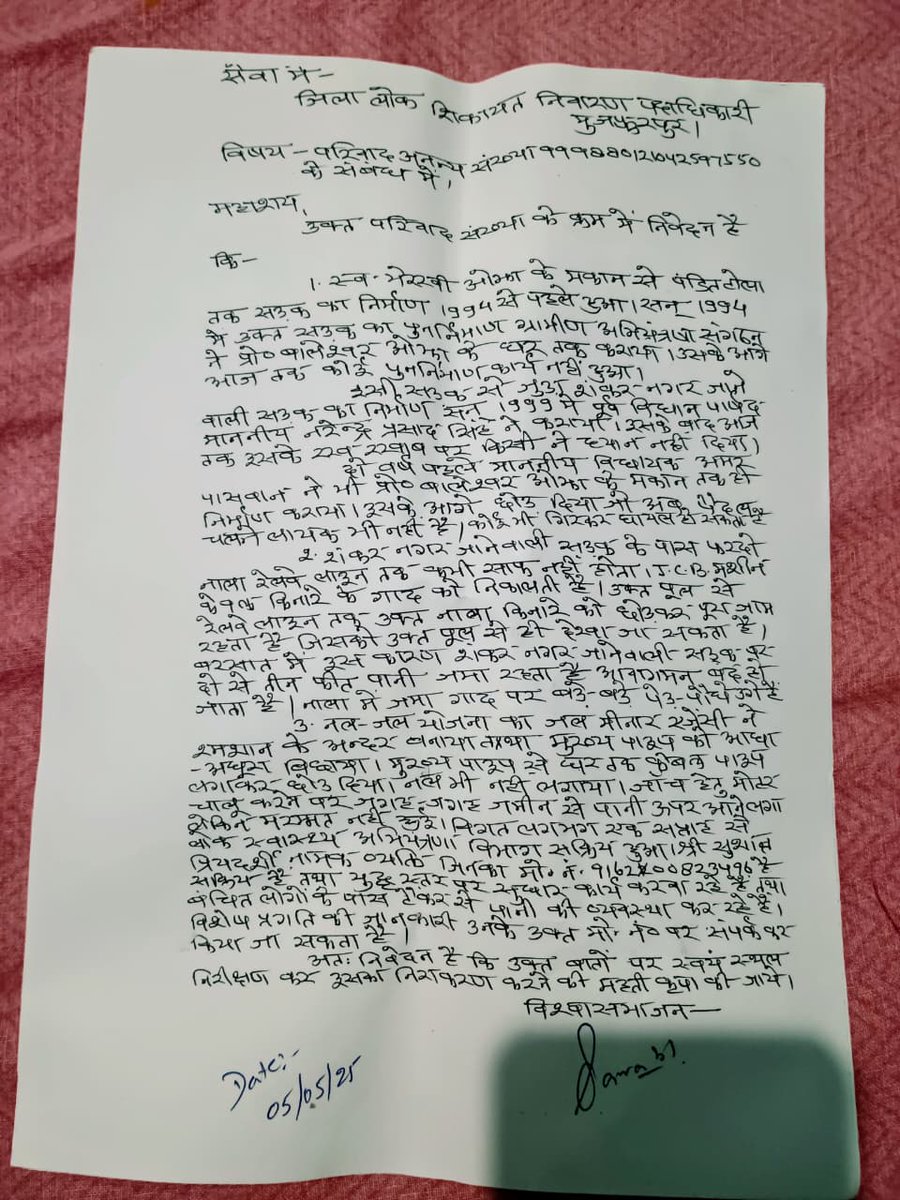 सेवा में-
जिला लोक शिकायत निवारण पदाधिकारी
मुजफ्फरपुर।
विषय - परिवाद अनन्य संख्या 999880121042597550
के संबंध में।
महाशय,
उक्त परिवाद संख्या के क्रम में निवेदन है
कि-
1. स्व. ओझा के मकान से पंडित टोला
तक सड़क का निर्माण 1994 से पहले हुआ। सन् 1994
में उक्त सड़क का पुनर्निर्माण ग्रामीण अभियंत्रण संगठन
ने प्रो० बालेश्वर ओझा के घर तक कराया। उसके आगे
आज तक कोई पुनर्निर्माण कार्य नहीं हुआ।
इसी सड़क से जुड़ा शंकर नगर जाने
वाली सड़क का निर्माण सन् 1999 में पूर्व विधान पार्षद
माननीय नरेन्द्र प्रसाद सिंह ने कराया। इसके बाद आज
तक इसके रख रखाव पर किसी ने ध्यान नहीं दिया।
दो वर्ष पहले माननीय विधायक अमर
पासवान ने भी प्रो० बालेश्वर ओझा के मकान तक ही
निर्माण कराया। उसके आगे छोड़ दिया जो अब पैदल
चलने लायक भी नहीं है। कोई भी गिरकर घायल हो सकता है
2. शंकर नगर जानेवाली सड़क के पास फरदो
नाला रेलवे लाइन तक कभी साफ नहीं होता। J.C.B. मशीन
केवल किनारे के गाद को निकालती है। उक्त पूल से
रेलवे लाइन तक उक्त नाला किनारे को छोड़कर पूरा जाम
रहता है जिसको उक्त पूल से ही देखा जा सकता है।
बरसात में इस कारण शंकर नगर जानेवाली सड़क पर
दो से तीन फीट पानी जमा रहता है आवागमन बंद हो
जाता है। नाला में जमा गाद पर बड़े-बड़े पेड़-पौधे उगे हैं
3. नल-जल योजना का जल मीनार एजेंसी ने
श्मशान के अन्दर बनाया तथा मुख्य पाइप को आधा
-अधूरा बिछाया। मुख्य पाइप से घर तक केवल पाइप
लगाकर छोड़ दिया। नल भी नहीं लगाया। जाँच हेतु मोटर
चालू करने पर जगह-जगह जमीन से पानी ऊपर आने लगा
लेकिन मरम्मत नहीं हुई। विगत लगभग एक सप्ताह से
लोक स्वास्थ्य अभियंत्रण विभाग सक्रिय हुआ। श्री सुशांत
प्रियदर्शी नामक व्यक्ति जिनका मो. नं. है
सक्रिय है तथा युद्ध स्तर पर सुधार कार्य करवा रहे हैं तथा
बंचित लोगों के पास टैंकर से पानी की व्यवस्था कर रहे हैं।
विशेष प्रगति की जानकारी उनके उक्त मो. नं० पर संपर्क कर
किया जा सकता है।
अतः निवेदन है कि उक्त बातों पर स्वयं स्थल
निरीक्षण कर उसका निराकरण करने की महती कृपा की जाये।
विश्वासभाजन-
Date:-
05/05/25